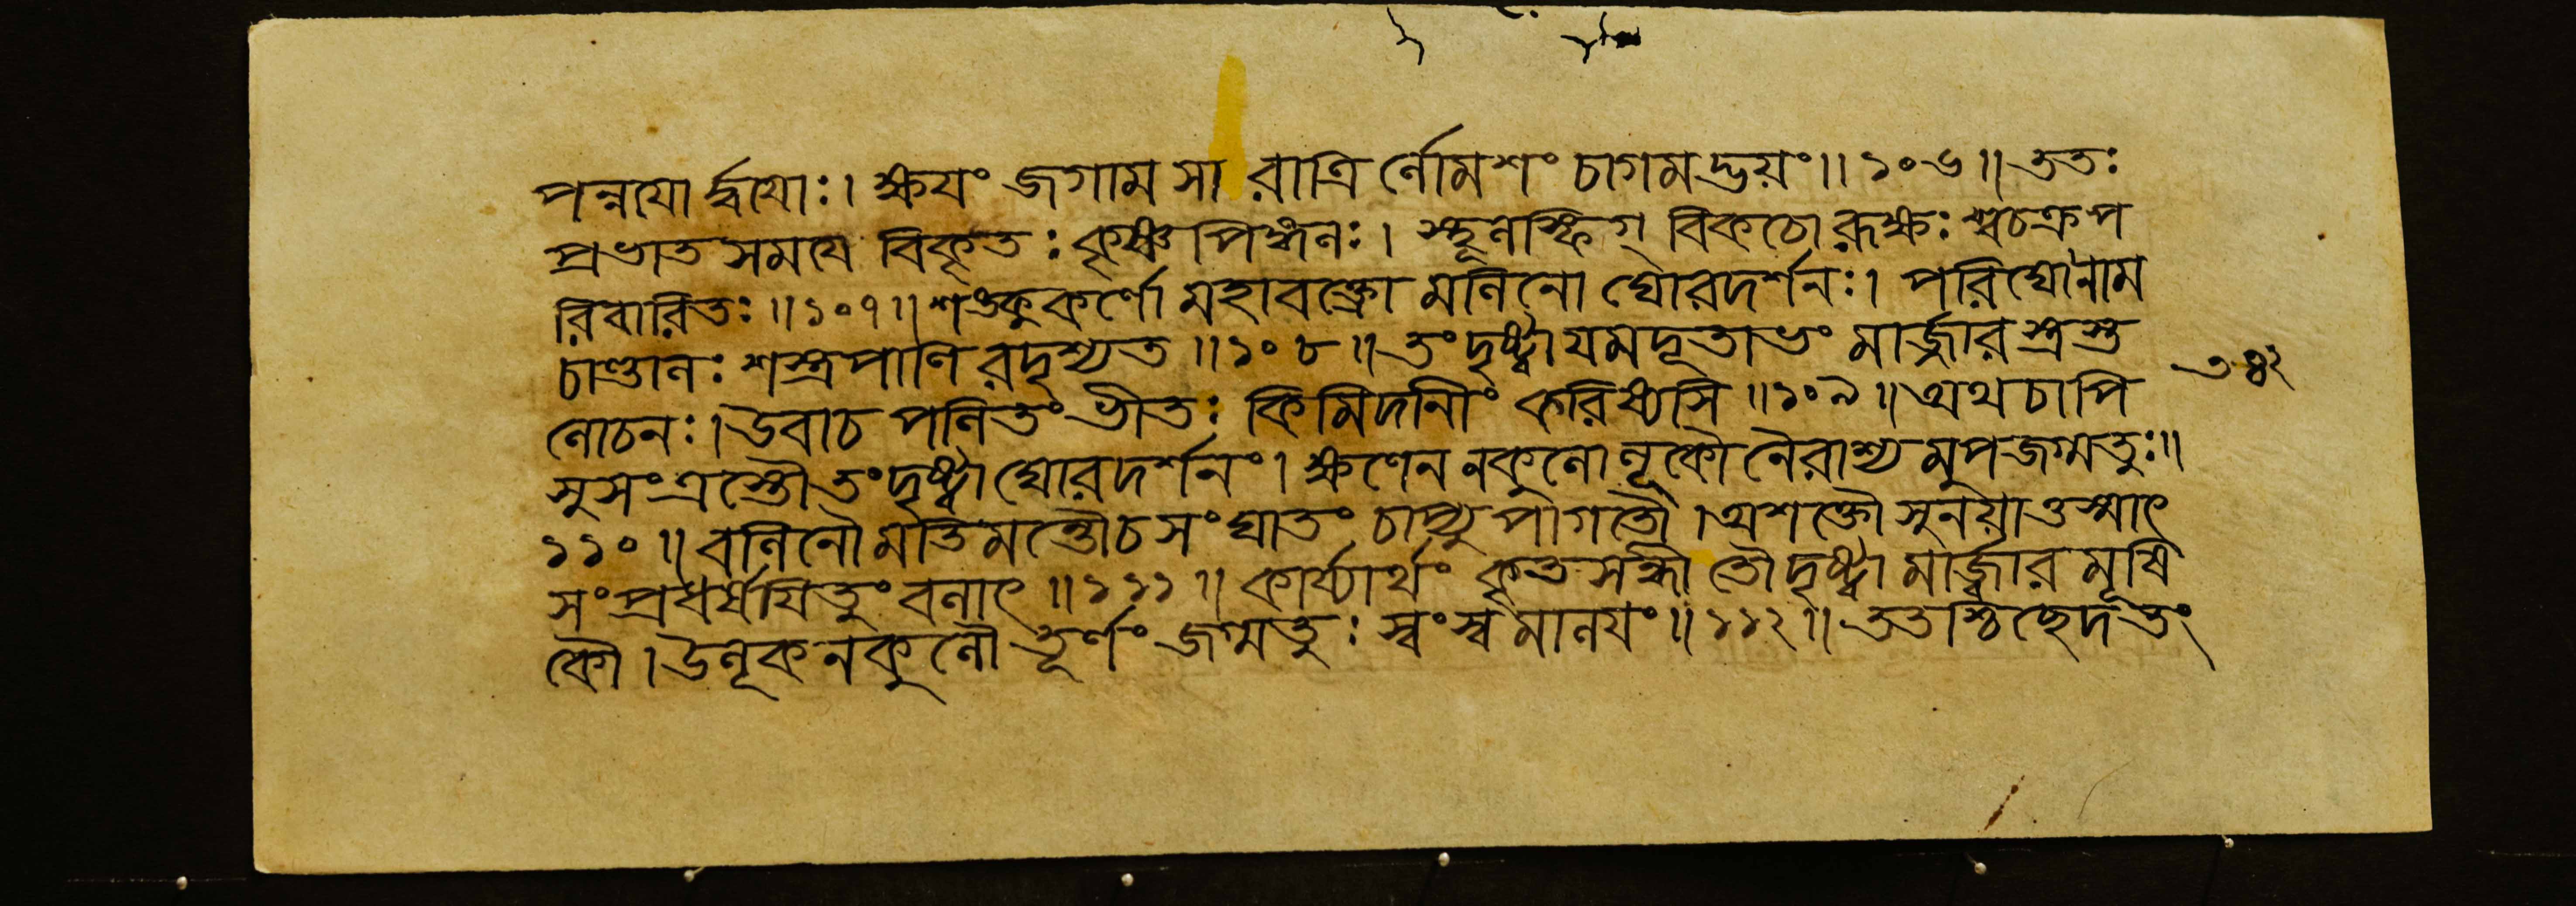 পন্নযোর্দ্ধযোঃ। ক্ষযং জগাম সা রাত্রির্লোমশং চাগমদ্ভয়ং॥১০৬॥ততঃ
প্রভাতসমযে বিকৃতঃ কৃষ্ণপিঙ্গলঃ। স্থূলস্ফিগ্ বিকচো রূক্ষঃ শ্বচক্রপ
রিবারিতঃ॥১০৭॥শঙ্কুকর্ণো মহাবক্ত্রো মলিনো ঘোরদর্শনঃ। পরিঘোনাম
চাণ্ডালঃ শস্ত্রপাণিরদৃশ্যত॥১০৮॥তং দৃষ্ট্বা যমদূতাভং মার্জ্জারস্ত্রস্ত
লোচনঃ।উবাচ পলিতং ভীতঃ কিমিদানীং করিষ্যসি॥১০৯॥অথ চাপি
সুসংত্রস্তৌ তং দৃষ্ট্বা ঘোরদর্শনং। ক্ষণেন নকুলোলূকৌ নৈরাশ্যমুপজগ্মতুঃ॥
১১০॥বলিনৌ মতিমন্তৌ চ সংঘাতং চাপ্যুপাগতৌ।অশক্তৌ সুনয়াত্তস্মাৎ
সংপ্রধর্ষযিতুং বলাৎ॥১১১॥ কার্য্যার্থং কৃতসন্ধী তৌ দৃষ্ট্বা মার্জ্জারমূষি
কৌ।উলূকনকুলৌ তূর্ণং জগ্মতুঃ স্বংস্বমালযং॥১১২॥ততশ্চিছেদ তং